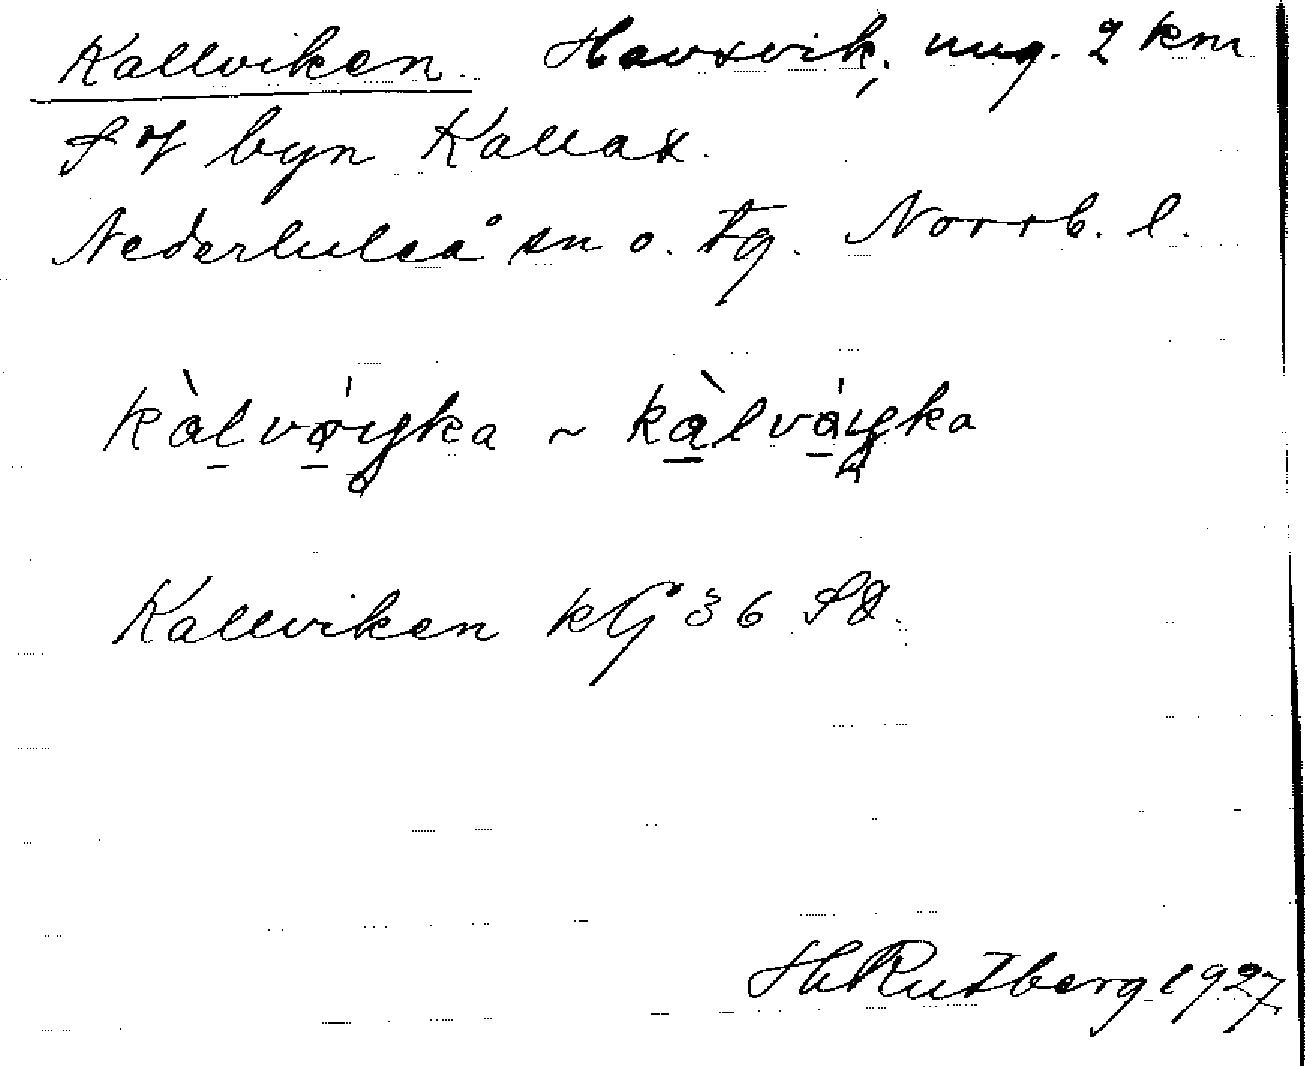 Kallviken. Havsvik, ung. 2 km
S of byn Kallax.
Nederluleå sn o. tg. Norrb. l.
kàlvǿyka ~ kàlváyka
Kallviken kG 36 SO.
Hb Rutberg 1927